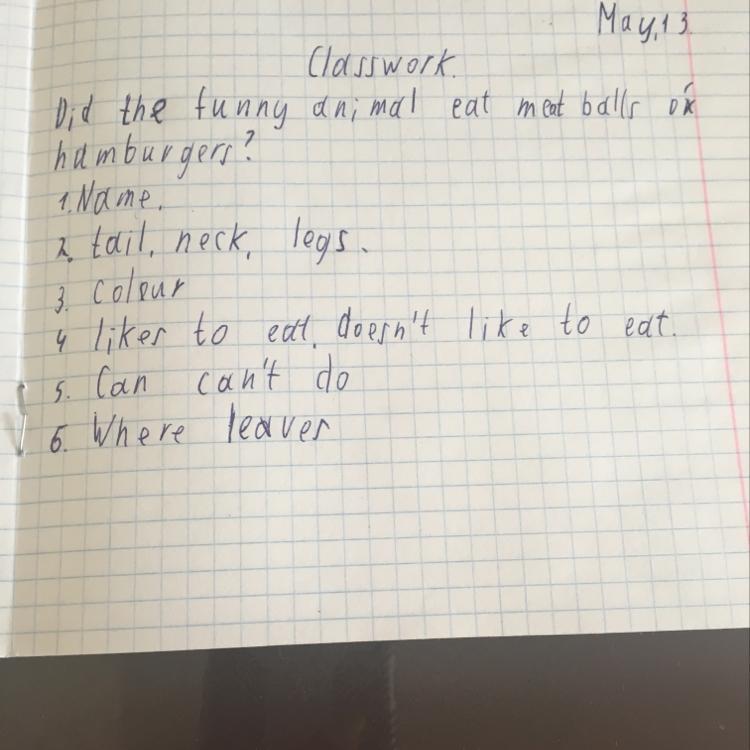 May, 13
Classwork.
Did the funny animal eat meat balls or
hamburgers?
1. Name.
2. tail, neck, legs.
3. colour
4 likes to eat, doesn't like to eat.
5. Can can't do
6. Where leaves